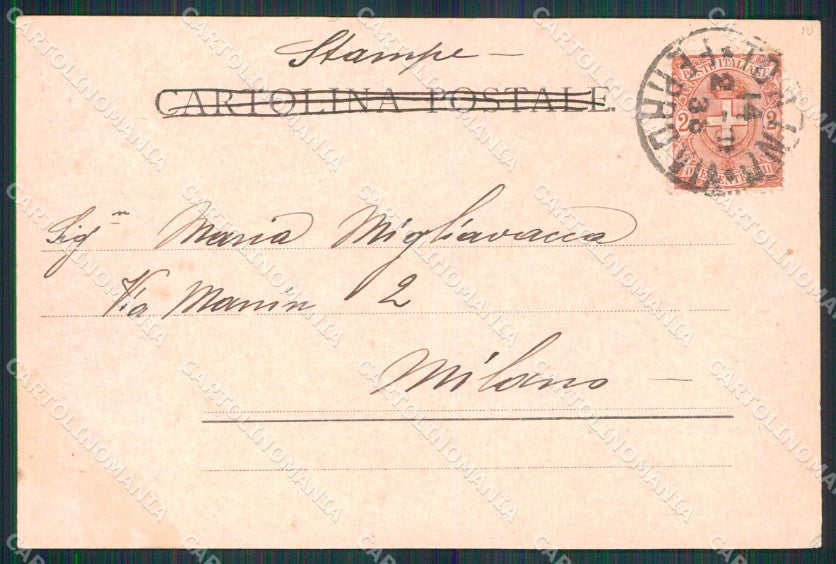 Stampe –
CARTOLINA POSTALE.
Sigⁿᵃ Maria Migliavacca
Via Manin 2
Milano –
POSTE ITALIANE
2 2
CARTOLINOMANIA